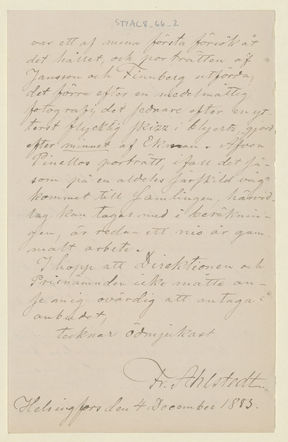 STYAL8_66_2
var ett af mina första försök åt
det hållet, och porträtten af
Jansson och Finnberg utförda,
det förre efter en medelmåttig
fotografi, det sednare efter en yt-
terst flygtig skizz i blyerts, gjord
efter minnet af Ekman. Äfven
Pinellos porträtt, ifall det så-
som på en alldeles särskild väg
kommet till Samlingen, härvid-
lag kan tagas med i beräknin-
gen, är redan ett nio år gam-
malt arbete.
I hopp att Direktionen och
Prisnämnden icke måtte an-
se mig ovärdig att antaga
anbudet,
tecknar ödmjukast
Fr. Ahlstedt
Helsingfors den 4 December 1883.